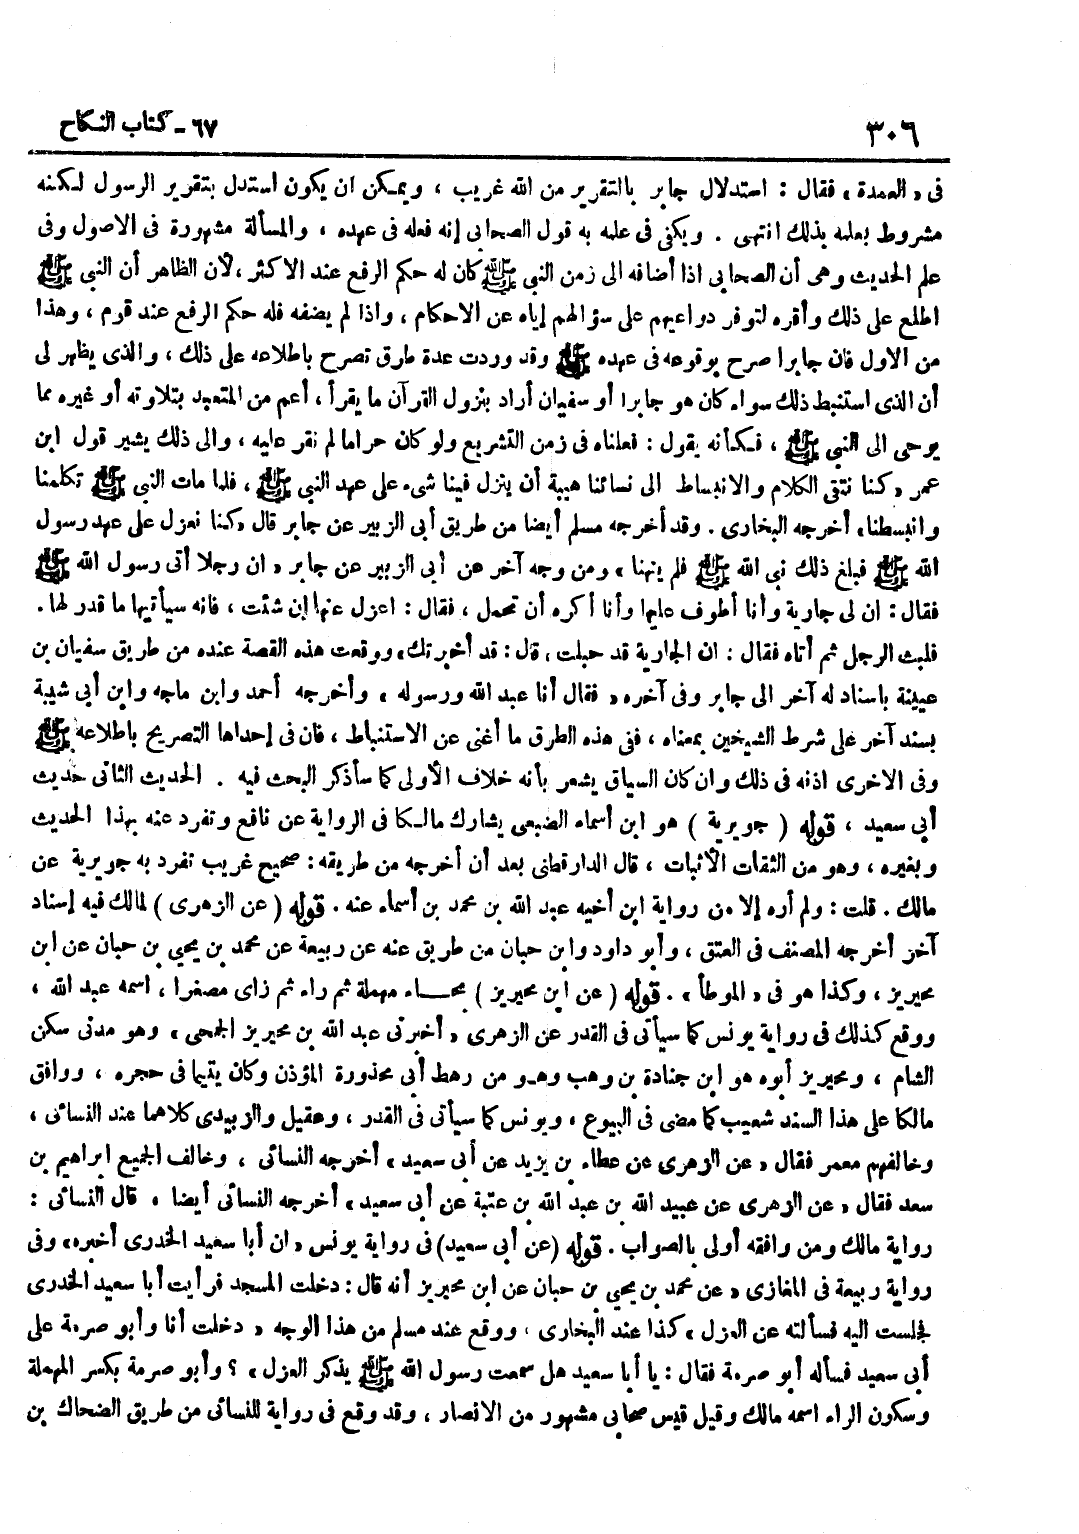 ٣٠٦
٦٧ - كتاب النكاح
فى « العمدة » فقال : استدلال جابر بالتقرير من الله غريب ، ويمكن ان يكون استدل بتقرير الرسول لكنه
مشروط بعلمه بذلك انتهى . ويكفى فى علمه به قول الصحابى إنه فعله فى عهده ، والمسألة مشهورة فى الاصول وفى
علم الحديث وهى أن الصحابى اذا أضافه الى زمن النبى ﷺ كان له حكم الرفع عند الاكثر ، لأن الظاهر أن النبى ﷺ
اطلع على ذلك وأقره لتوفر دواعيهم على سؤالهم إياه عن الاحكام ، واذا لم يضفه فله حكم الرفع عند قوم ، وهذا
من الاول فان جابرا صرح بوقوعه فى عهده ﷺ وقد وردت عدة طرق تصرح باطلاعه على ذلك ، والذى يظهر لى
أن الذى استنبط ذلك سواء كان هو جابرا أو سفيان أراد بنزول القرآن ما يقرأ ، أعم من المتعبد بتلاوته أو غيره مما
يوحى الى النبى ﷺ ، فكأنه يقول : فعلناه فى زمن التشريع ولو كان حراما لم نقر عليه ، والى ذلك يشير قول ابن
عمر « كنا نتقى الكلام والانبساط الى نسائنا هيبة أن ينزل فينا شىء على عهد النبى ﷺ ، فلما مات النبى ﷺ تكلمنا
وانبسطنا » أخرجه البخارى . وقد أخرجه مسلم أيضا من طريق أبى الزبير عن جابر قال « كنا نعزل على عهد رسول
الله ﷺ فبلغ ذلك نبى الله ﷺ فلم ينهنا » ومن وجه آخر عن أبى الزبير عن جابر « ان رجلا أتى رسول الله ﷺ
فقال : ان لى جارية وأنا أطوف عليها وأنا أكره أن تحمل ، فقال : اعزل عنها إن شئت ، فانه سيأتيها ما قدر لها .
فلبث الرجل ثم أتاه فقال : ان الجارية قد حبلت ، قال : قد أخبرتك » ووقعت هذه القصة عنده من طريق سفيان بن
عيينة باسناد له آخر الى جابر وفى آخره « فقال أنا عبد الله ورسوله » وأخرجه أحمد وابن ماجه وابن أبى شيبة
بسند آخر على شرط الشيخين بمعناه ، ففى هذه الطرق ما أغنى عن الاستنباط ، فان فى إحداها التصريح باطلاعه ﷺ
وفى الاخرى اذنه فى ذلك وان كان السياق يشعر بأنه خلاف الأولى كما سأذكر البحث فيه . الحديث الثانى حديث
أبى سعيد ، قوله ( جويرية ) هو ابن أسماء الضبعى يشارك مالكا فى الرواية عن نافع وتفرد عنه بهذا الحديث
وبغيره ، وهو من الثقات الأثبات ، قال الدارقطنى بعد أن أخرجه من طريقه : صحيح غريب تفرد به جويرية عن
مالك . قلت : ولم أره إلا من رواية ابن أخيه عبد الله بن محمد بن أسماء عنه . قوله ( عن الزهرى ) لمالك فيه إسناد
آخر أخرجه المصنف فى العتق ، وأبو داود وابن حبان من طريق عنه عن ربيعة عن محمد بن يحيى بن حبان عن ابن
محيريز ، وكذا هو فى « الموطأ » . قوله ( عن ابن محيريز ) بحاء مهملة ثم راء ثم زاى مصغرا ، اسمه عبد الله ،
ووقع كذلك فى رواية يونس كما سيأتى فى القدر عن الزهرى « أخبرنى عبد الله بن محيريز الجمحى » وهو مدنى سكن
الشام ، ومحيريز أبوه هو ابن جنادة بن وهب وهو من رهط أبى محذورة المؤذن وكان يتيما فى حجره ، ووافق
مالكا على هذا السند شعيب كما مضى فى البيوع ، ويونس كما سيأتى فى القدر ، وعقيل والزبيدى كلاهما عند النسائى ،
وخالفهم معمر فقال « عن الزهرى عن عطاء بن يزيد عن أبى سعيد » أخرجه النسائى ، وخالف الجميع ابراهيم بن
سعد فقال « عن الزهرى عن عبيد الله بن عبد الله بن عتبة عن أبى سعيد » أخرجه النسائى أيضا ، قال النسائى :
رواية مالك ومن وافقه أولى بالصواب . قوله (عن أبى سعيد) فى رواية يونس « ان أبا سعيد الخدرى أخبره » وفى
رواية ربيعة فى المغازى « عن محمد بن يحيى بن حبان عن ابن محيريز أنه قال : دخلت المسجد فرأيت أبا سعيد الخدرى
فجلست اليه فسألته عن العزل » كذا عند البخارى ، ووقع عند مسلم من هذا الوجه « دخلت أنا وأبو صرمة على
أبى سعيد فسأله أبو صرمة فقال : يا أبا سعيد هل سمعت رسول الله ﷺ يذكر العزل » ؟ وأبو صرمة بكسر المهملة
وسكون الراء اسمه مالك وقيل قيس صحابى مشهور من الانصار ، وقد وقع فى رواية للنسائى من طريق الضحاك بن